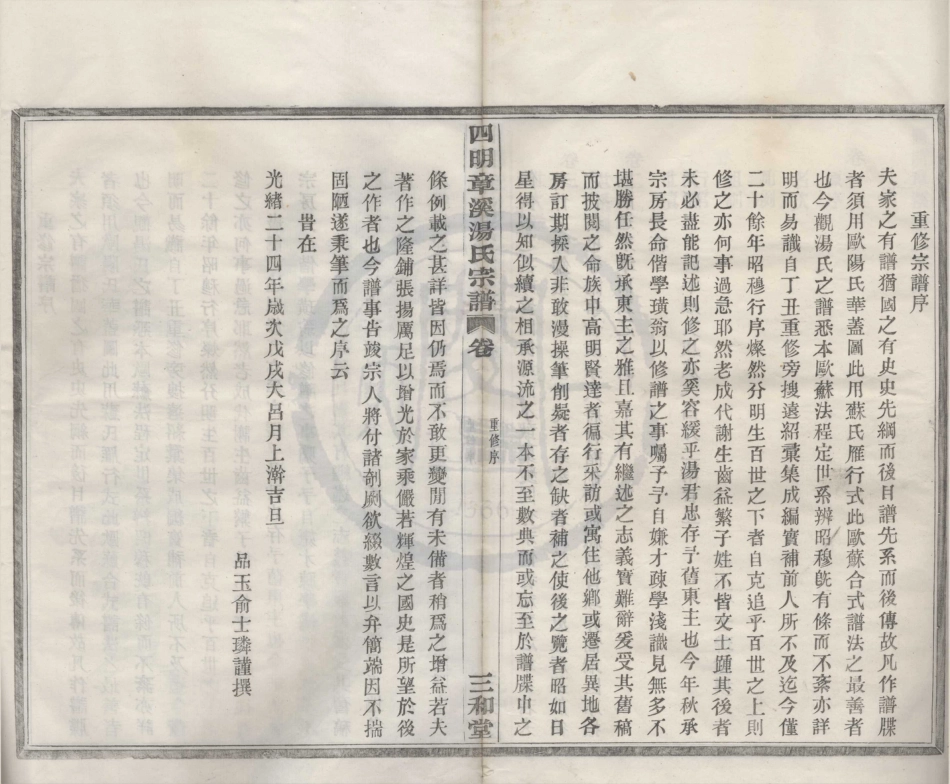 重修宗譜序
夫家之有譜猶國之有史史先綱而後目譜先系而後傳故凡作譜牒
者須用歐陽氏華蓋圖此用蘇氏雁行式此歐蘇合式譜法之最善者
也今觀湯氏之譜悉本歐蘇法程定世系辨昭穆旣有條而不紊亦詳
明而易識自丁丑重修旁搜遠紹彙集成編實補前人所不及迄今僅
二十餘年昭穆行序燦然分明生百世之下者自克追乎百世之上則
修之亦何事過急耶然老成代謝生齒益繁子姓不皆文士踵其後者
未必盡能記述則修之亦奚容緩乎湯君忠存予舊東主也今年秋承
宗房長命偕學璜翁以修譜之事囑予予自嫌才疎學淺識見無多不
堪勝任然旣承東主之雅且嘉其有繼述之志義實難辭爰受其舊稿
而披閱之命族中高明賢達者徧行采訪或寓住他鄉或遷居異地各
房訂期採入非敢漫操筆削疑者存之缺者補之使後之覽者昭如日
星得以知似續之相承源流之一本不至數典而或忘至於譜牒中之
四明章溪湯氏宗譜 卷
重修序
三和堂
條例載之甚詳皆因仍焉而不敢更變閒有未備者稍爲之增益若夫
著作之隆鋪張揚厲足以增光於家乘儼若輝煌之國史是所望於後
之作者也今譜事告竣宗人將付諸剞劂欲綴數言以弁簡端因不揣
固陋遂秉筆而爲之序云
旹在
光緒二十四年歲次戊戌大呂月上澣吉旦
品玉俞士璘謹撰